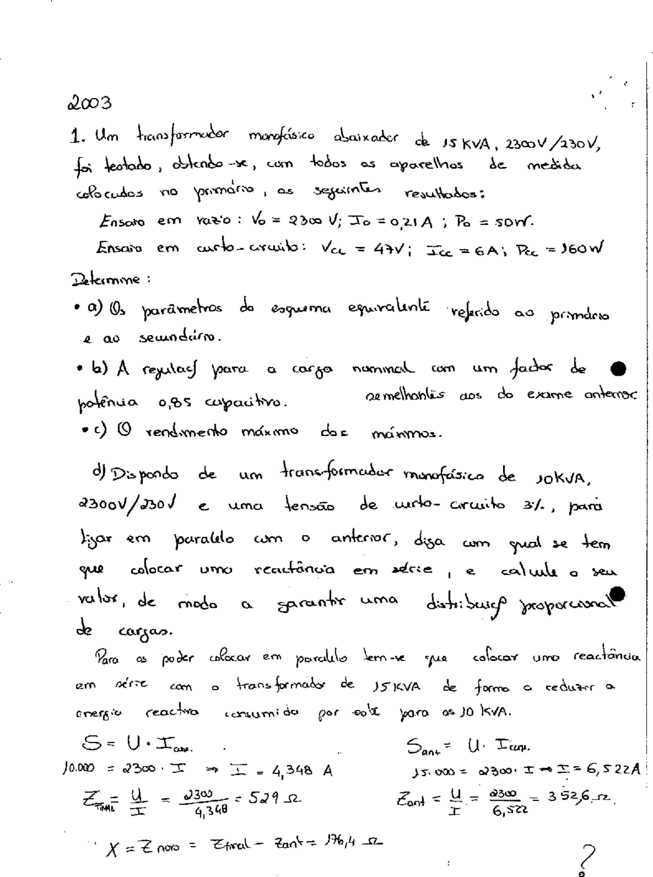 2003
1. Um transformador monofásico abaixador de 15 KVA, 2300V/230V,
foi testado, obtendo-se, com todos os aparelhos de medida
colocados no primário, os seguintes resultados:
Ensaio em vazio: V₀ = 2300 V; I₀ = 0,21 A ; P₀ = 50W.
Ensaio em curto-circuito: Vcc = 47V; Icc = 6A; Pcc = 160W
Determine:
• a) Os parâmetros do esquema equivalente referido ao primário
e ao secundário.
• b) A regulaç para a carga nominal com um factor de
potência 0,85 capacitivo. semelhantes aos do exame anterior
• c) O rendimento máximo dos máximos.
d) Dispondo de um transformador monofásico de 10KVA,
2300V/230V e uma tensão de curto-circuito 3%, para
ligar em paralelo com o anterior, diga com qual se tem
que colocar uma reactância em série, e calcule o seu
valor, de modo a garantir uma distribuiç proporcional
de cargas.
Para os poder colocar em paralelo tem-se que colocar uma reactância
em série com o transformador de 15KVA de forma a reduzir a
energia reactiva consumida por este para os 10 KVA.
S = U · I
Sant = U · I
10.000 = 2300 · I ⇒ I = 4,348 A
15.000 = 2300 · I ⇒ I = 6,522A
Z_FINAL = U/I = 2300/4,348 = 529 Ω
Zant = U/I = 2300/6,522 = 352,6 Ω
X = Z novo = Zfinal - Zant = 176,4 Ω
?